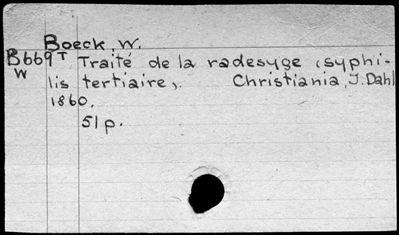 Boeck, W.
B669T Traité de la radesyge (syphi-
W lis tertiaire). Christiania, J. Dahl
1860.
51p.